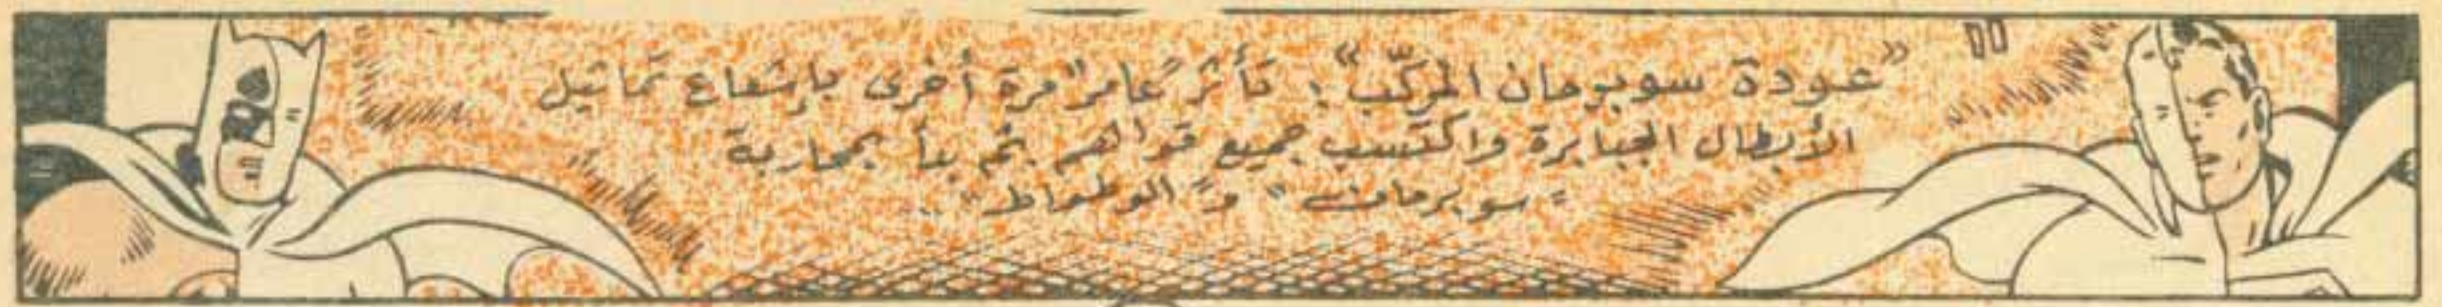 "عودة سوبرمان المركّب": تأثر "عامر" مرة أخرى بإشعاع تماثيل
الأبطال الجبابرة واكتسب جميع قواهم ثم بدأ بمحاربة
"سوبرمان" و"الوطواط"..